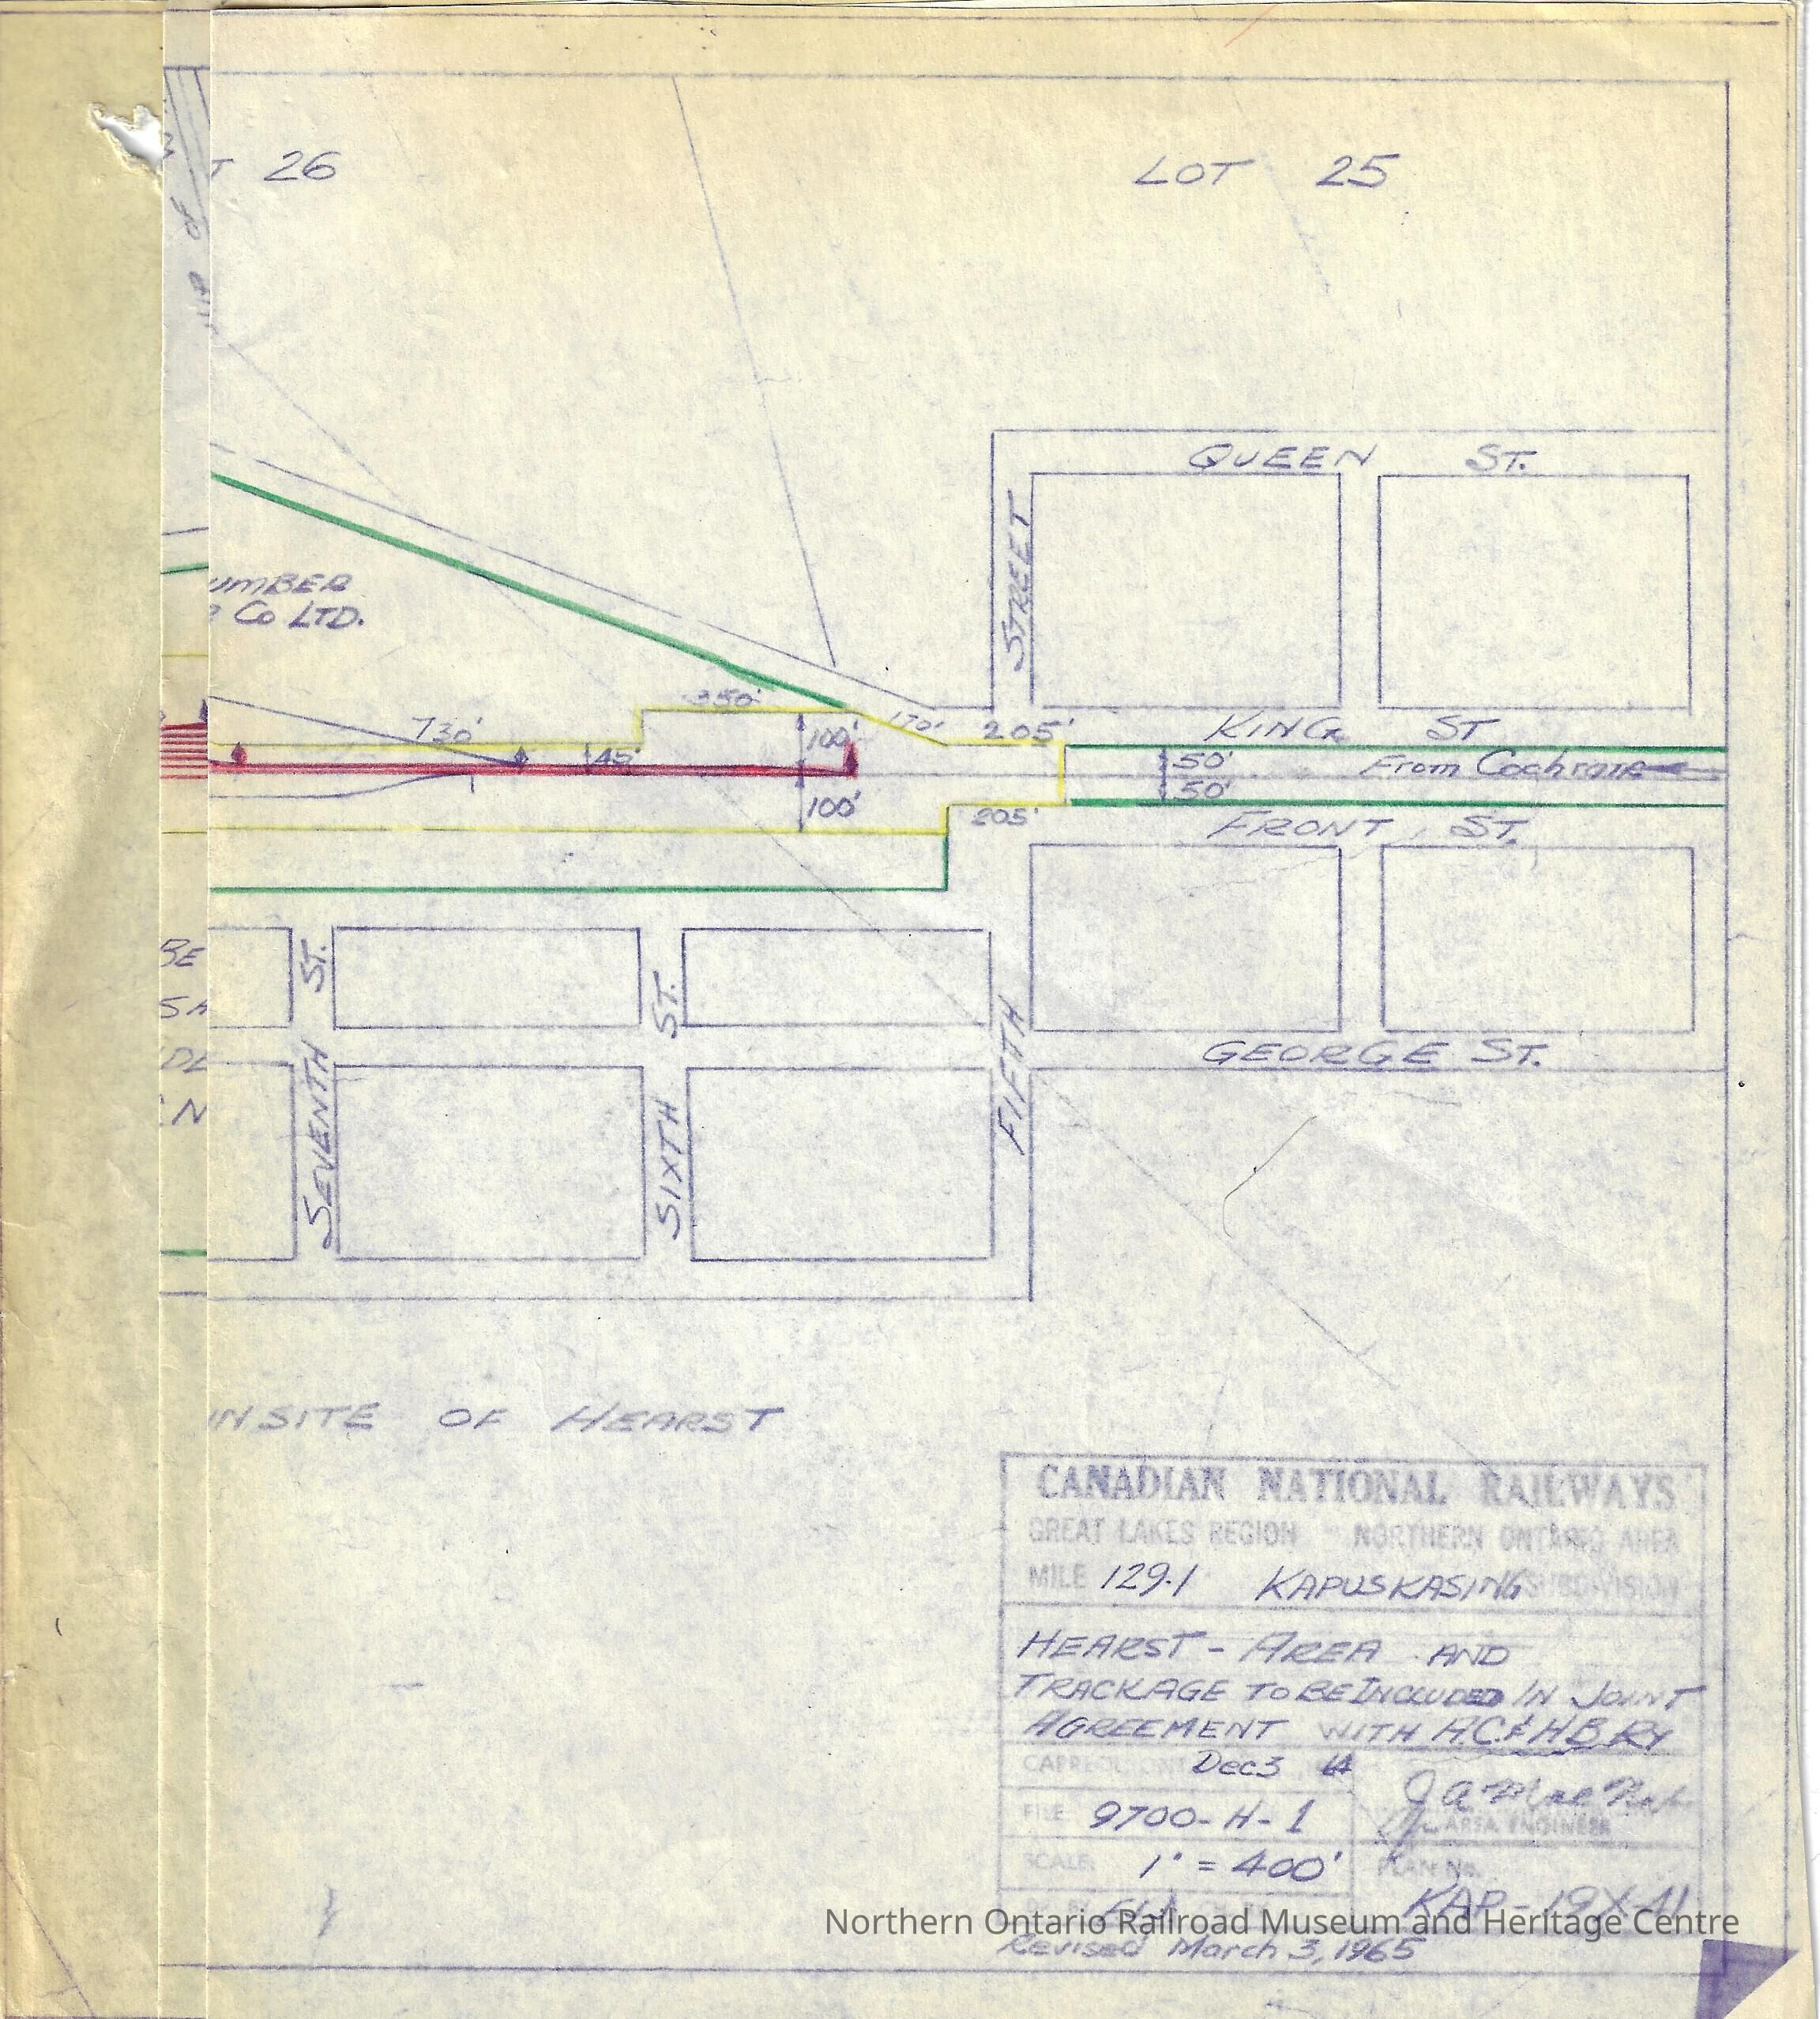 T 26
LOT 25
of
QUEEN ST.
STREET
UMBER
Co LTD.
350'
730'
170'
205'
KING ST
100'
45'
50'
From Cochrane
50'
100'
205'
FRONT ST.
BE
SA
DE
EN
SEVENTH ST.
SIXTH ST.
FIFTH
GEORGE ST.
NSITE OF HEARST
CANADIAN NATIONAL RAILWAYS
GREAT LAKES REGION NORTHERN ONTARIO AREA
MILE 129.1 KAPUSKASING SUBDIVISION
HEARST - AREA AND
TRACKAGE TO BE INCLUDED IN JOINT
AGREEMENT WITH A.C. & H.B. RY
CAPREOL, ONT. Dec 3 64
J A MacNab
AREA ENGINEER
FILE 9700-H-1
SCALE: 1" = 400'
PLAN No.
KAP-19X-41
Northern Ontario Railroad Museum and Heritage Centre
Revised March 3, 1965